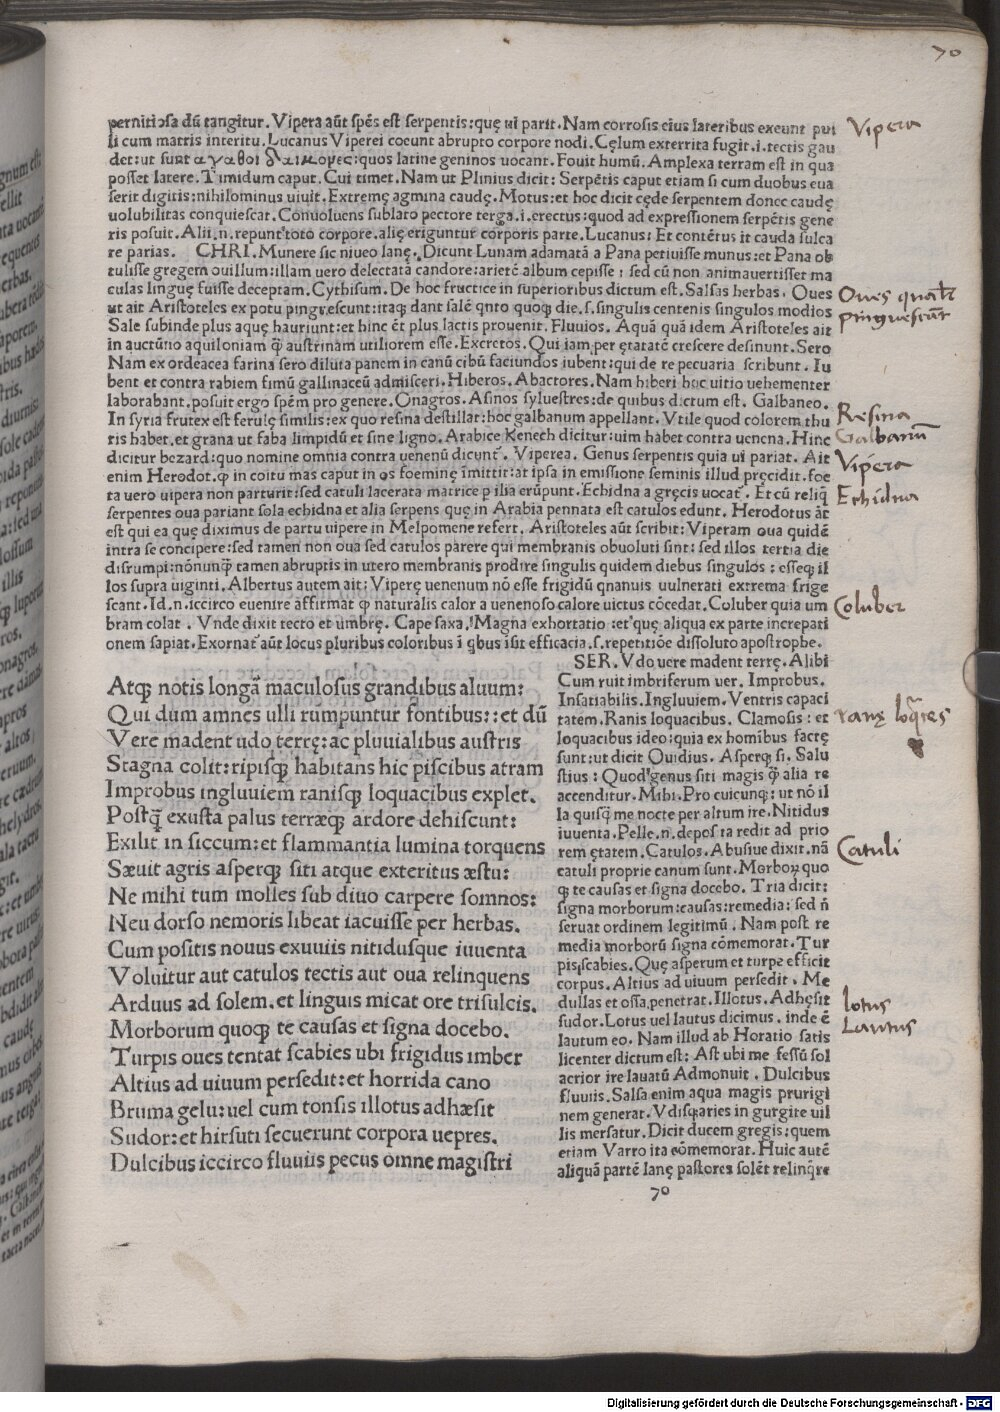 70
pernitiosa dū tangitur. Vipera aūt spēs est serpentis: quę ui parit. Nam corrosis eius lateribus exeunt pul
li cum matris interitu. Lucanus Viperei coeunt abrupto corpore nodi. Cęlum exterrita fugit .i. tectis gau
det: ut sunt αγαθοι δαιμονες: quos latine geninos uocant. Fouit humū. Amplexa terram est in qua
posset latere. Timidum caput. Cui timet. Nam ut Plinius dicit: Serpētis caput etiam si cum duobus eua
serit digitis: nihilominus uiuit. Extremę agmina caudę. Motus: et hoc dicit cęde serpentem donec caudę
uolubilitas conquiescat. Conuoluens sublato pectore terga .i. erectus: quod ad expressionem serpētis gene
ris posuit. Alii .n. repunt toto corpore. alię eriguntur corporis parte. Lucanus: Et contētus it cauda sulca
re parias. CHRI. Munere sic niueo lanę. Dicunt Lunam adamatā a Pana petiuisse munus: et Pana ob
tulisse gregem ouillum: illam uero delectatā candore: arietē album cepisse: sed cū non animauertisset ma
culas linguę fuisse deceptam. Cythisum. De hoc frutice in superioribus dictum est. Salsas herbas. Oues
ut ait Aristoteles ex potu pingrescunt: itaq; dant salē qnto quoq; die .s. singulis centenis singulos modios
Sale subinde plus aquę hauriunt: et hinc ēt plus lactis prouenit. Fluuios. Aquā quā idem Aristoteles ait
in auctūno aquiloniam q̄ austrinam utiliorem esse. Excretos. Qui iam per ętatatē crescere desinunt. Sero
Nam ex ordeacea farina sero diluta panem in canū cibū faciundos iubent: qui de re pecuaria scribunt. Iu
bent et contra rabiem fimū gallinaceū admisceri. Hiberos. Abactores. Nam hiberi hoc uitio uehementer
laborabant. posuit ergo spēm pro genere. Onagros. Asinos syluestres: de quibus dictum est. Galbaneo.
In syria frutex est ferulę similis: ex quo resina destillat: hoc galbanum appellant. Vtile quod colorem thu
ris habet. et grana ut faba limpidū et sine ligno. Arabice Kenech dicitur: uim habet contra uenena. Hinc
dicitur bezard: quo nomine omnia contra uenenū dicunt. Viperea. Genus serpentis quia ui pariat. Ait
enim Herodot. q in coitu mas caput in os foeminę īmittit: at ipsa in emissione seminis illud pręcidit. foe
ta uero uipera non parturit: sed catuli lacerata matrice p ilia erūpunt. Echidna a gręcis uocat. Et cū reliq
serpentes oua pariant sola echidna et alia serpens quę in Arabia pennata est catulos edunt. Herodotus āt
est qui ea quę diximus de partu uipere in Melpomene refert. Aristoteles aūt scribit: Viperam oua quidē
intra se concipere: sed tamen non oua sed catulos parere qui membranis obuoluti sint: sed illos tertia die
disrumpi: nōnunq̄ tamen abruptis in utero membranis prodire singulis quidem diebus singulos: esseq; il
los supra uiginti. Albertus autem ait: Viperę uenenum nō esse frigidū qnanuis uulnerati extrema frige
scant. Id .n. iccirco euenire affirmat q naturalis calor a uenenoso calore uictus cōcedat. Coluber quia um
bram colat. Vnde dixit tecto et umbrę. Cape saxa. Magna exhortatio: et quę aliqua ex parte increpati
onem sapiat. Exornat aūt locus pluribus coloribus i qbus isit efficacia .s. repetitiōe dissoluto apostrophe.
Atq; notis longā maculosus grandibus aluum:
Qui dum amnes ulli rumpuntur fontibus: : et dū
Vere madent udo terrę: ac pluuialibus austris
Stagna colit: ripisq; habitans hic piscibus atram
Improbus ingluuiem ranisq; loquacibus explet.
Postq̄ exusta palus terræq; ardore dehiscunt:
Exilit in siccum: et flammantia lumina torquens
Sæuit agris asperq; siti atque exteritus æstu:
Ne mihi tum molles sub diuo carpere somnos:
Neu dorso nemoris libeat iacuisse per herbas.
Cum positis nouus exuuiis nitidusque iuuenta
Voluitur aut catulos tectis aut oua relinquens
Arduus ad solem. et linguis micat ore trisulcis.
Morborum quoq; te causas et signa docebo.
Turpis oues tentat scabies ubi frigidus imber
Altius ad uiuum persedit: et horrida cano
Bruma gelu: uel cum tonsis illotus adhæsit
Sudor: et hirsuti secuerunt corpora uepres.
Dulcibus iccirco fluuiis pecus omne magistri
SER. Vdo uere madent terrę. Alibi
Cum ruit imbriferum uer. Improbus.
Insatiabilis. Ingluuiem. Ventris capaci
tatem. Ranis loquacibus. Clamosis: et
loquacibus ideo: quia ex homibus factę
sunt: ut dicit Ouidius. Asperq; si. Salu
stius: Quod genus siti magis q̄ alia re
accenditur. Mihi. Pro cuicunq;: ut nō il
la quisq̄ me nocte per altum ire. Nitidus
iuuenta. Pelle .n. deposita redit ad prio
rem ętatem. Catulos. Abusiue dixit. nā
catuli proprie canum sunt. Morboꝝ quo
q; te causas et signa docebo. Tria dicit:
signa morborum: causas: remedia: sed ñ
seruat ordinem legitimū. Nam post re
media morborū signa cōmemorat. Tur
pis scabies. Quę asperum et turpe efficit
corpus. Altius ad uiuum persedit. Me
dullas et ossa penetrat. Illotus. Adhęsit
sudor. Lotus uel lautus dicimus. inde ē
lautum eo. Nam illud ab Horatio satis
licenter dictum est: Ast ubi me fessū sol
acrior ire lauatū Admonuit. Dulcibus
fluuiis. Salsa enim aqua magis prurigi
nem generat. Vdisq; aries in gurgite uil
lis mersatur. Dicit ducem gregis: quem
etiam Varro ita cōmemorat. Huic autē
aliquā partē lanę pastores solēt relinq̄re
70
Vipera
Oues
pinguescūt
Resina
Galbanū
Vipera
Echidna
Coluber
ranę loq̄ces
Catuli
lotus
Lautus
Digitalisierung gefördert durch die Deutsche Forschungsgemeinschaft - DFG